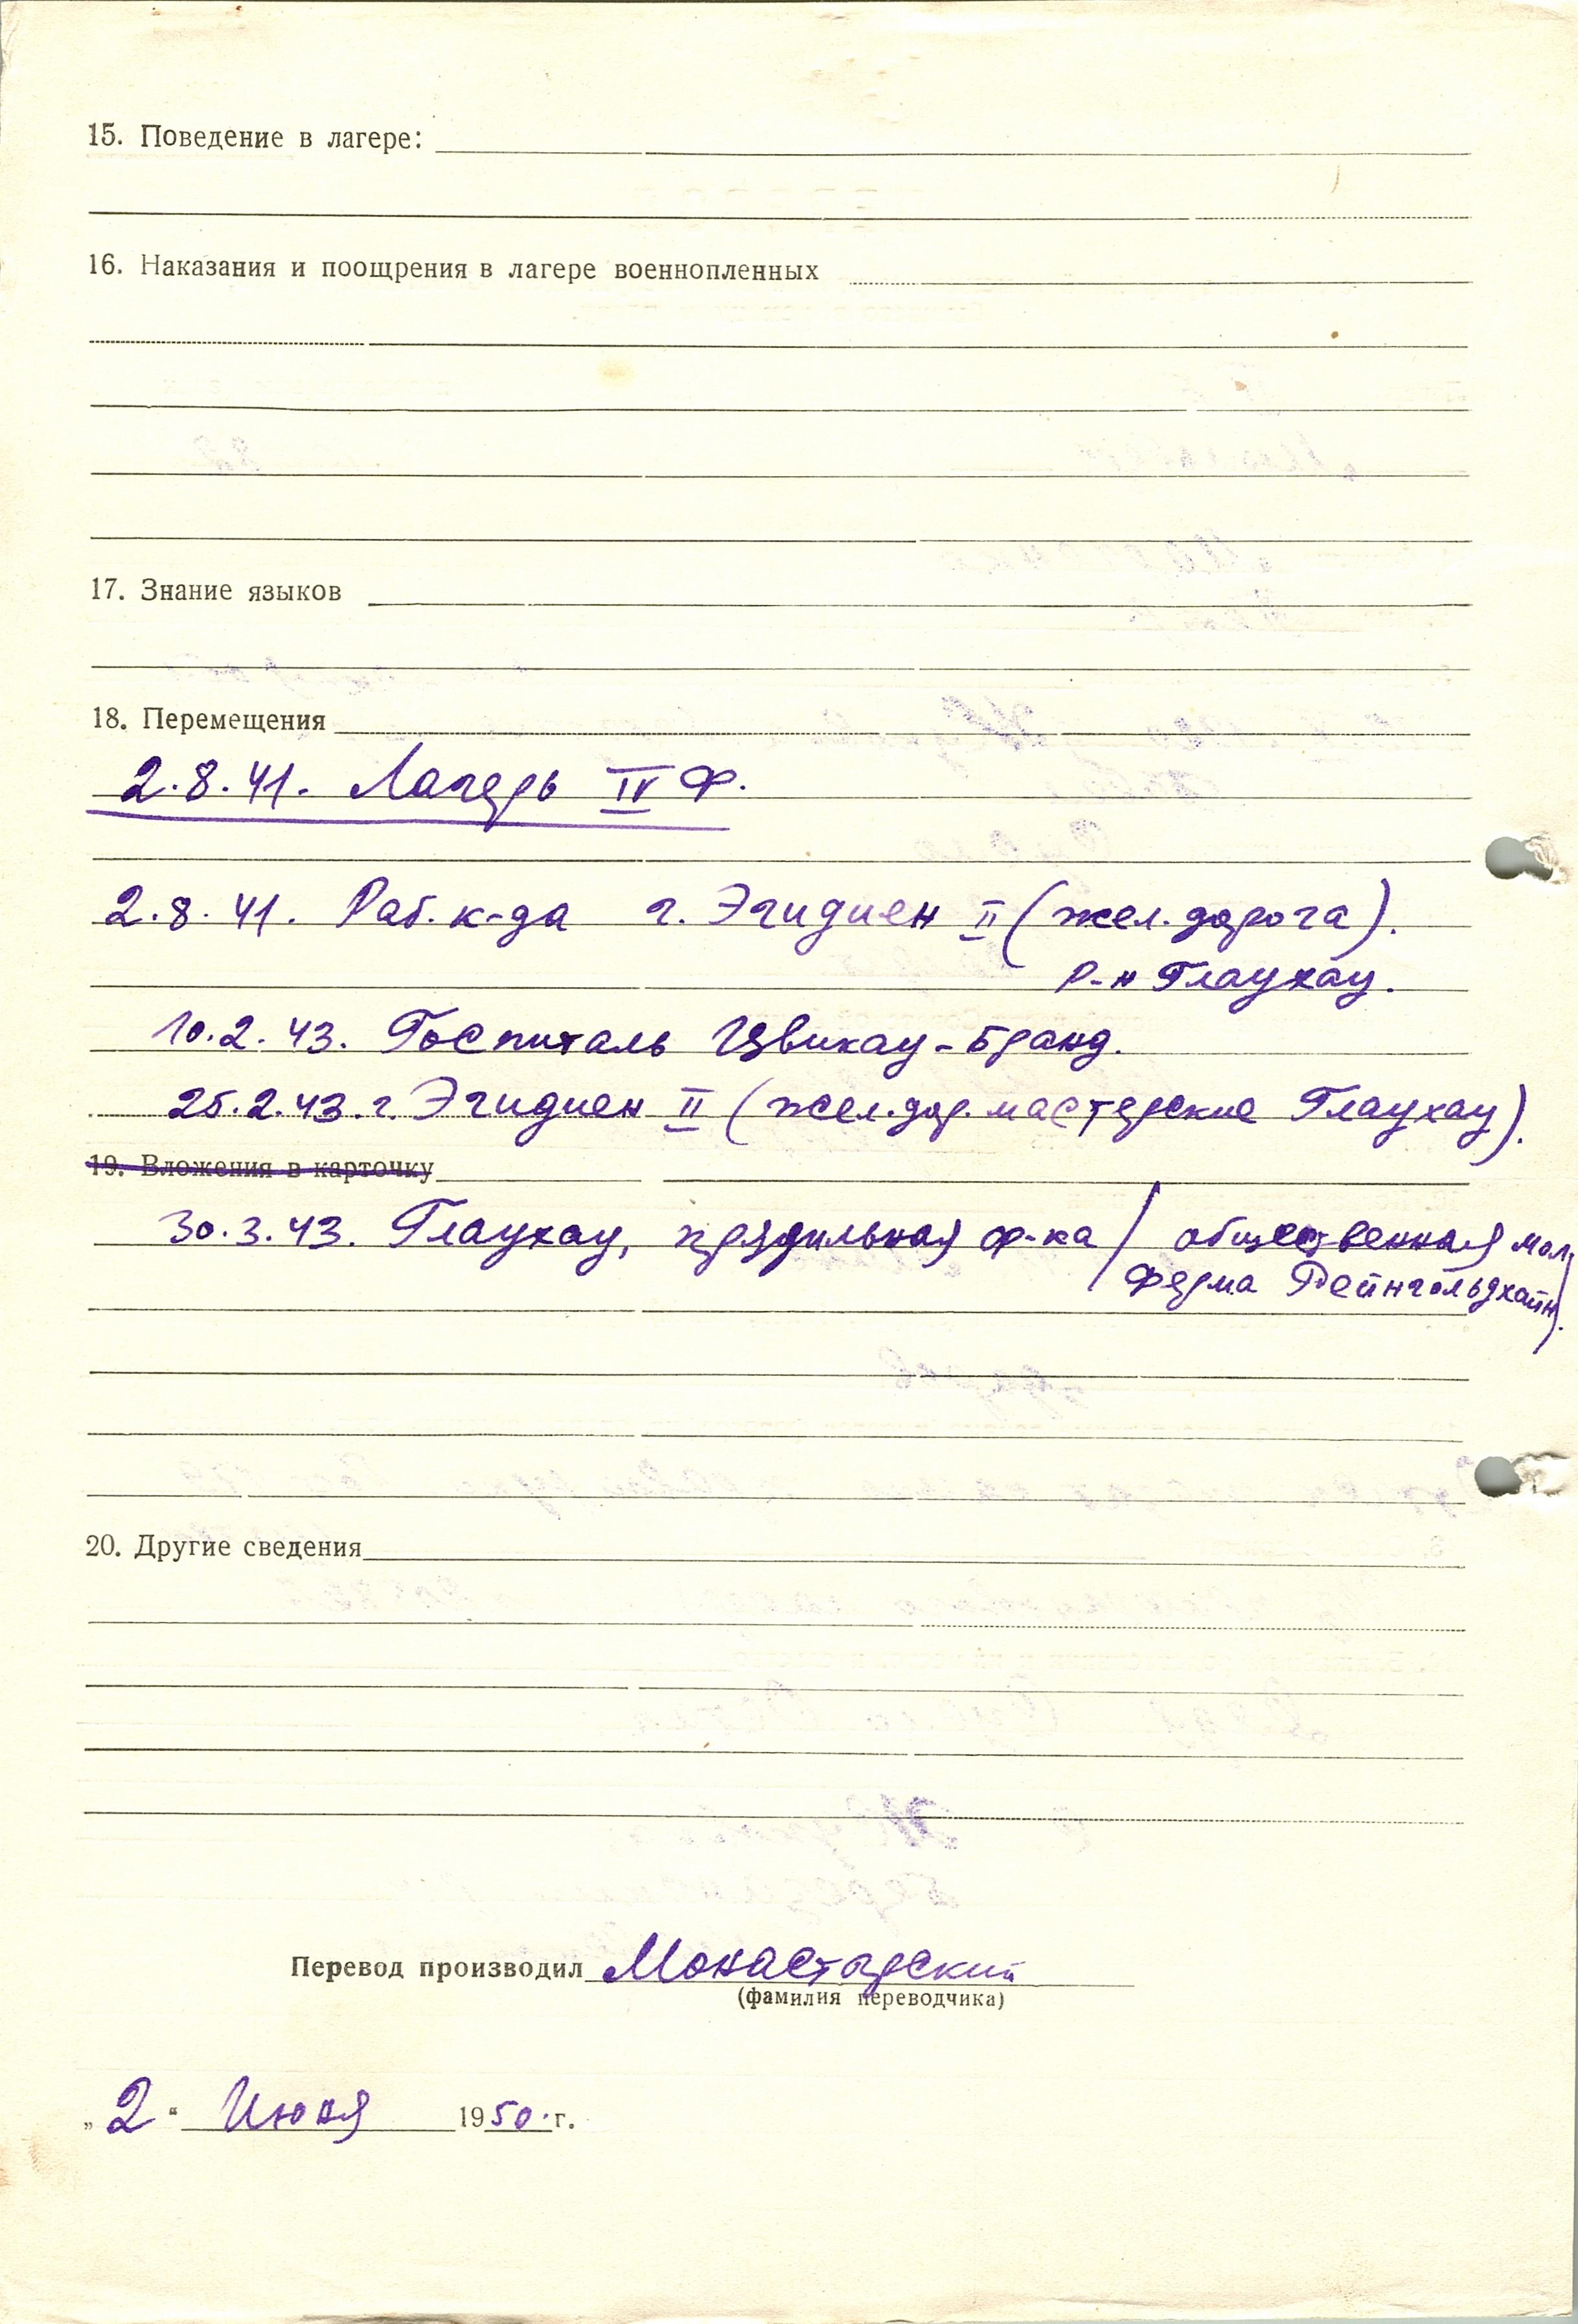 15. Поведение в лагере:
16. Наказания и поощрения в лагере военнопленных
17. Знание языков
18. Перемещения
2.8.41. Лагерь IV Ф.
2.8.41. Раб. к-да г. Эгидиен II (жел. дорога).
р-н Глаухау.
10.2.43. Госпиталь Цвикау-Бранд.
25.2.43.г. Эгидиен II (жел.дор. мастерские Глаухау).
19. Вложения в карточку
30.3.43. Глаухау, прядильная ф-ка / общественная мол.
ферма Рейнгольдхайн).
20. Другие сведения
Перевод производил Монастырский
(фамилия переводчика)
„2“ Июня 1950.г.